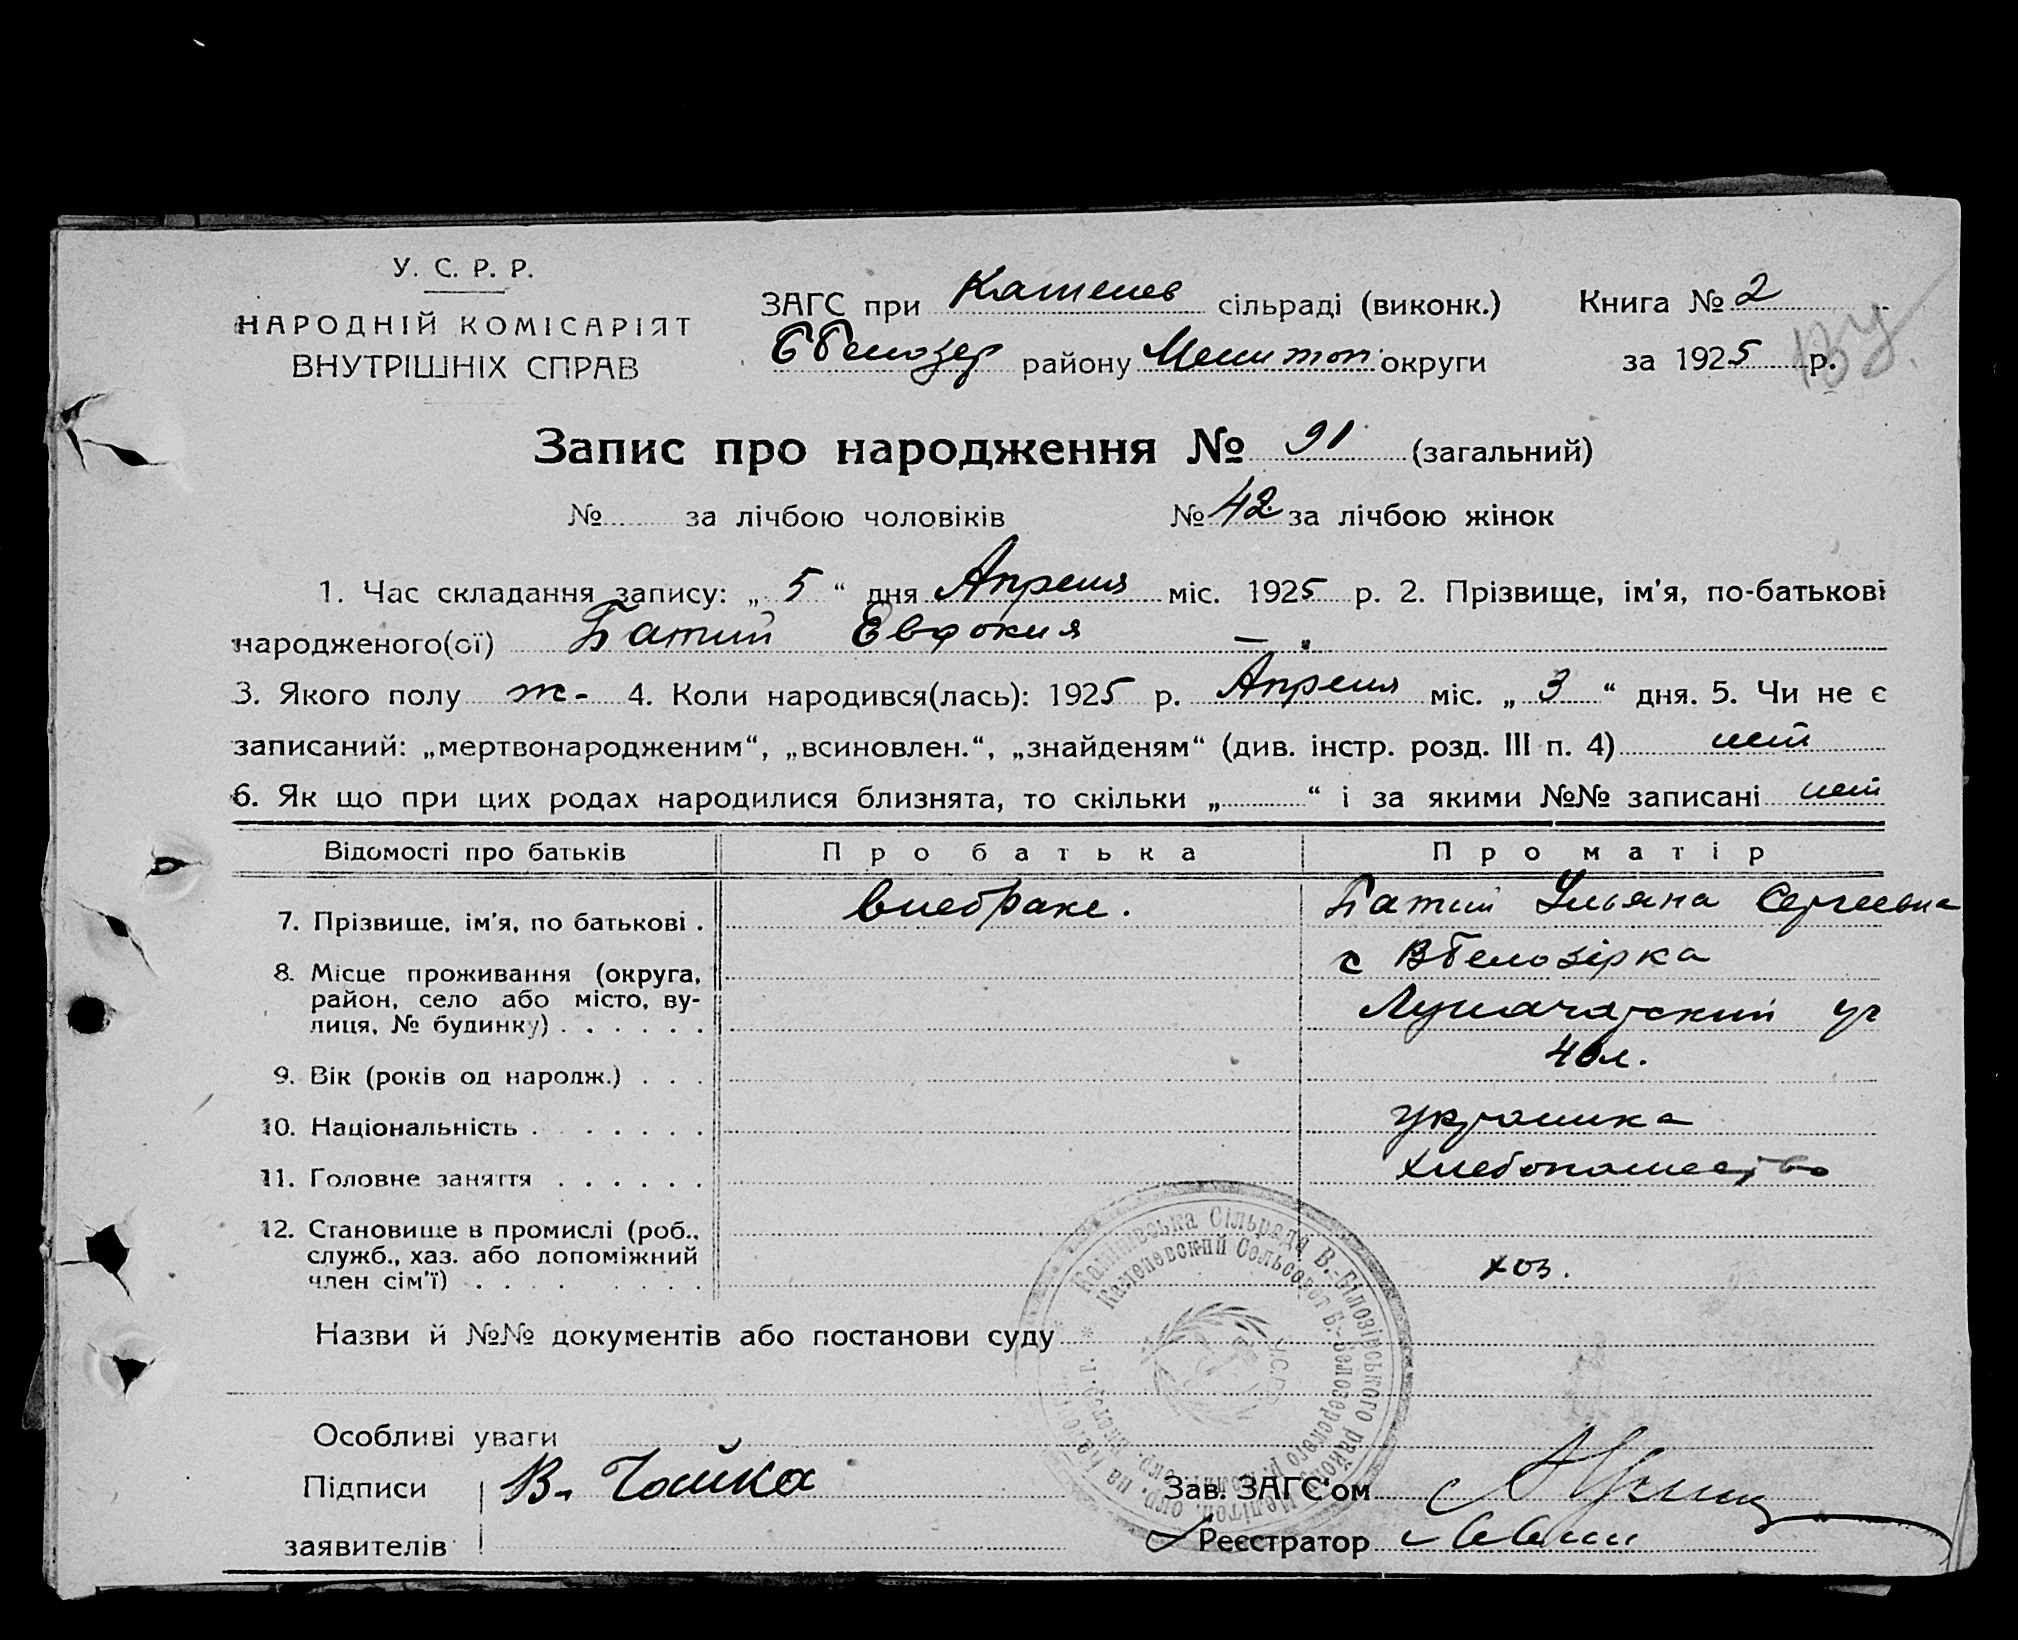 У. С. Р. Р.
НАРОДНІЙ КОМІСАРІЯТ
ВНУТРІШНІХ СПРАВ
ЗАГС при Каменев сільраді (виконк.)
Ббелозер району Мелитоп. округи
Книга № 2
за 1925 р.
Запис про народження № 91 (загальний)
№ за лічбою чоловіків № 42 за лічбою жінок
1. Час складання запису: „ 5 “ дня Апреля міс. 1925 р. 2. Прізвище, ім'я, по-батькові
народженого(ої) Батий Евдокия — „
3. Якого полу ж- 4. Коли народився(лась): 1925 р. Апреля міс. „ 3 “ дня. 5. Чи не є
записаний: „мертвонародженим“, „всиновлен.“, „знайденям“ (див. інстр. розд. III п. 4) нет
6. Як що при цих родах народилися близнята, то скільки „ “ і за якими №№ записані нет
Відомості про батьків Про батька Про матір
7. Прізвище, ім'я, по батькові . внебраке. Батий Ульяна Сергеевна
8. Місце проживання (округа, с Вбелозірка
район, село або місто, ву-
лиця, № будинку) . . . . . . Луначарский уч
9. Вік (років од народж.) . . . 40л.
10. Національність . . . . . . украинка
11. Головне заняття . . . . . . хлебопашество
12. Становище в промислі (роб.,
служб., хаз. або допоміжний
член сім'ї) . . . . . . хоз.
Назви й №№ документів або постанови суду
Особливі уваги
Підписи В. Чайка
заявителів
Зав. ЗАГС'ом
Реєстратор
Камінівська Сільрада В.-Білозірського району Мелітоп. окр. на
Каменевский Сельсовет Б.-Белозерского р.
УСРР